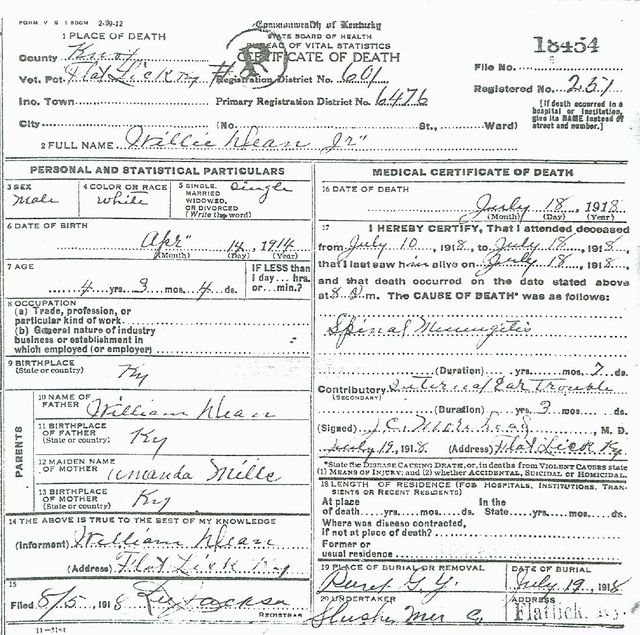 FORM V S 1 500M 2-30-12
Commonwealth of Kentucky
STATE BOARD OF HEALTH
BUREAU OF VITAL STATISTICS
CERTIFICATE OF DEATH
1 PLACE OF DEATH
County Knox
Vot. Pct. Flat Lick Ky # Registration District No. 601
Inc. Town Primary Registration District No. 6476
City (No. St., Ward)
File No. 18454
Registered No. 251
[If death occurred in a hospital or institution, give its NAME instead of street and number.]
2 FULL NAME Willie Dean Jr"
PERSONAL AND STATISTICAL PARTICULARS
3 SEX Male
4 COLOR OR RACE White
5 SINGLE, MARRIED WIDOWED, OR DIVORCED (Write the word) Single
6 DATE OF BIRTH
Apr" 14, 1914
(Month) (Day) (Year)
7 AGE
4 yrs. 3 mos. 4 ds.
IF LESS than 1 day... hrs. or... min.?
8 OCCUPATION
(a) Trade, profession, or particular kind of work
(b) General nature of industry business or establishment in which employed (or employer)
9 BIRTHPLACE (State or country) Ky
PARENTS
10 NAME OF FATHER William Dean
11 BIRTHPLACE OF FATHER (State or country) Ky
12 MAIDEN NAME OF MOTHER Amanda Mills
13 BIRTHPLACE OF MOTHER (State or country) Ky
14 THE ABOVE IS TRUE TO THE BEST OF MY KNOWLEDGE
(Informant) William Dean
(Address) Flat Lick Ky
15
Filed 8/5, 1918
REGISTRAR
11-3184
MEDICAL CERTIFICATE OF DEATH
16 DATE OF DEATH
July 18, 1918
(Month) (Day) (Year)
17 I HEREBY CERTIFY, That I attended deceased
from July 10, 1918, to July 18, 1918,
that I last saw him alive on July 18, 1918,
and that death occurred on the date stated above
at m. The CAUSE OF DEATH* was as follows:
Spinal Meningitis
(Duration) yrs. mos. 7 ds.
Contributory Internal Ear Trouble
(SECONDARY)
(Duration) yrs. 3 mos. ds.
(Signed) M. D.
July 19, 1918 (Address) Flat Lick Ky.
*State the DISEASE CAUSING DEATH, or, in deaths from VIOLENT CAUSES state (1) MEANS OF INJURY; and (2) whether ACCIDENTAL, SUICIDAL OR HOMICIDAL.
18 LENGTH OF RESIDENCE (FOR HOSPITALS, INSTITUTIONS, TRANSIENTS OR RECENT RESIDENTS)
At place of death yrs. mos. ds. In the State yrs. mos. ds.
Where was disease contracted, if not at place of death?
Former or usual residence
19 PLACE OF BURIAL OR REMOVAL G. Y.
DATE OF BURIAL July 19, 1918
20 UNDERTAKER Slusher Mer Co
ADDRESS Flatlick, Ky.